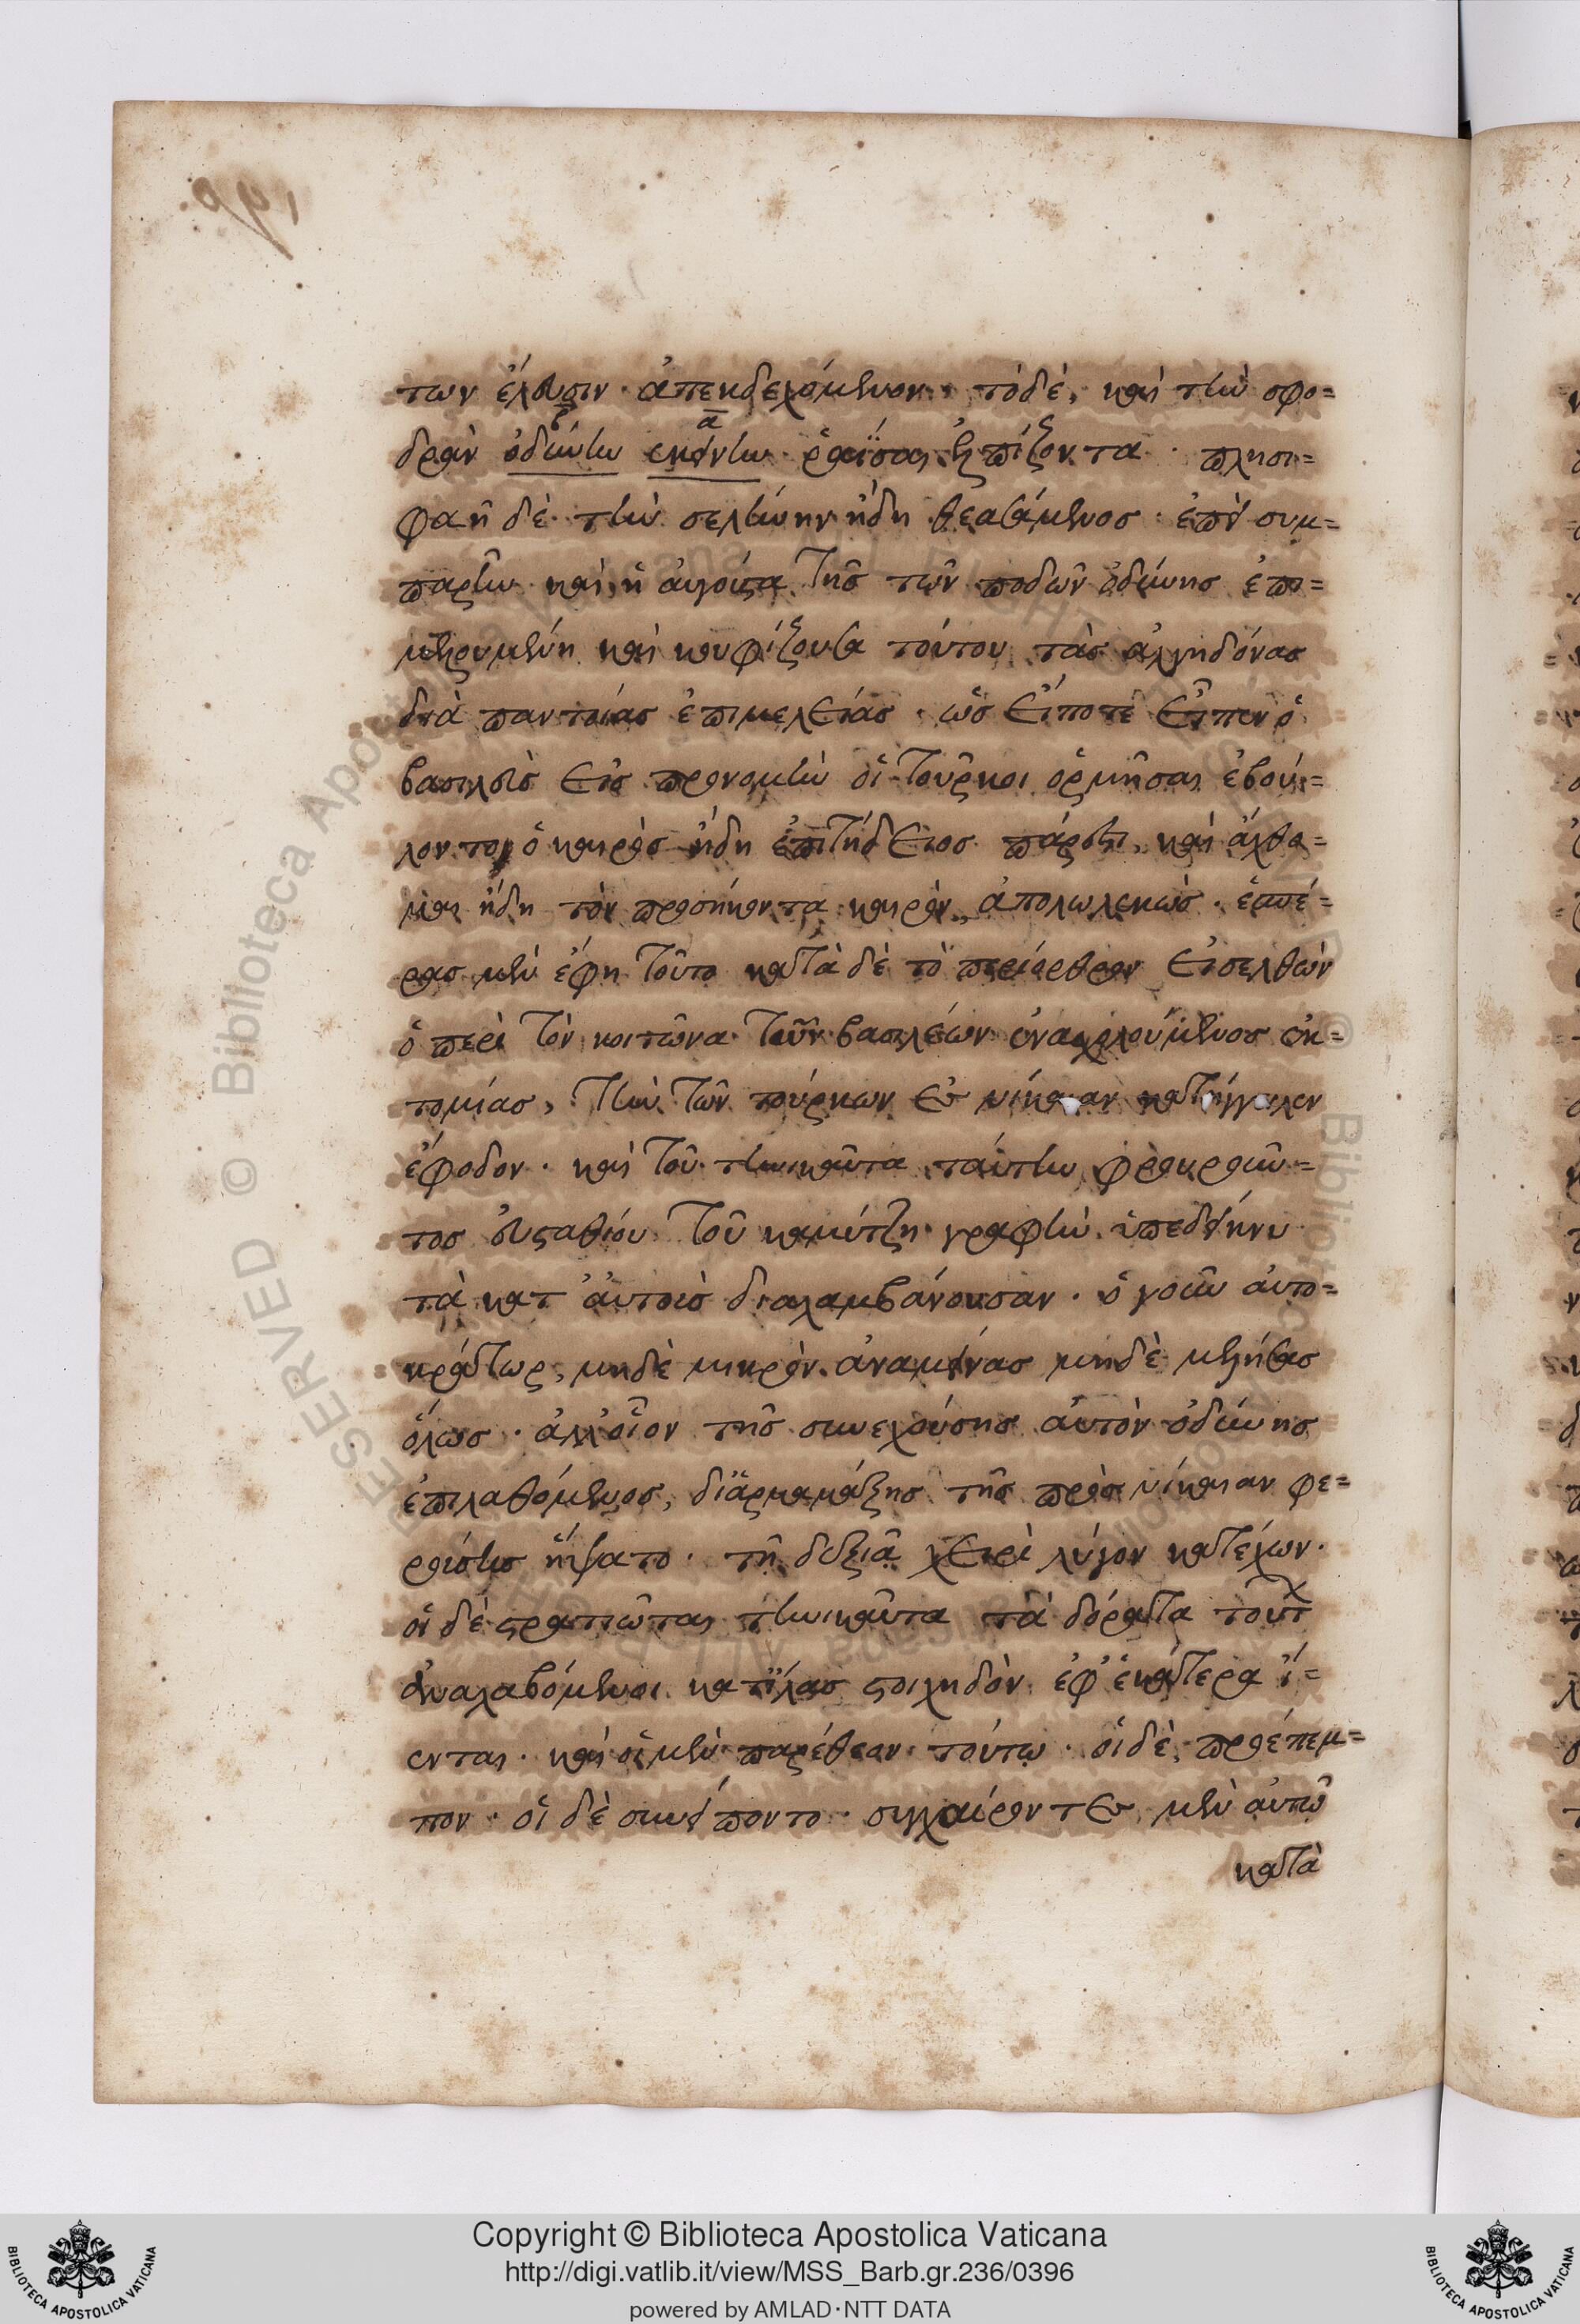 των ἔλευσιν· ἀπεκδεχόμενον· τὸ δὲ, καὶ τὴν σφο=
δρὰν ὀδύνην ἐκείνην ῥαΐσαι ἐλπίζοντα· πλησι=
φαῆ δὲ τὴν σελήνην ἤδη θεασάμενος· ἐπεὶ συμ=
παρῆν καὶ ἡ αὐγούστα τῆς τῶν ποδῶν ὀδύνης ἐπι=
μελουμένη καὶ κουφίζουσα τούτου τὰς ἀλγηδόνας
διὰ παντοίας ἐπιμελείας· ὡς εἴποτε εἶπεν ὁ
βασιλεὺς εἰς προνομὴν οἱ τοῦρκοι ὁρμῆσαι ἐβού=
λοντο, ὁ καιρὸς ἤδη ἐπιτήδειος πάρεστι, καὶ ἄχθο=
μαι ἤδη τὸν προσήκοντα καιρὸν, ἀπολωλεκὼς· ἑσπέ=
ρας μὲν ἔφη τοῦτο κατὰ δὲ τὸ περίορθρον εἰσελθὼν
ὁ περὶ τὸν κοιτῶνα τῶν βασιλέων ἐνασχολούμενος ἐκ=
τομίας, τὴν τῶν τούρκων ἐς νίκαιαν κατήγγειλεν
ἔφοδον· καὶ τοῦ τηνικαῦτα ταύτην φρουροῦν=
τος εὐσταθίου τοῦ καμύτζη γραφὴν ὑπεδείκνυ
τὰ κατ αὐτοὺς διαλαμβάνουσαν· ὁ γοῦν αὐτο=
κράτωρ, μηδὲ μικρὸν ἀναμείνας μηδὲ μελλήσας
ὅλως· ἀλλ οἷον τῆς συνεχούσης αὐτὸν ὀδύνης
ἐπιλαθόμενος, δι ἁρμαμάξης τῆς πρὸς νίκαιαν φε=
ρούσης ἥψατο· τῇ δεξιᾷ χειρὶ λύγον κατέχων·
οἱ δὲ στρατιῶται τηνικαῦτα τὰ δόρατα τουτ
ἀναλαβόμενοι κατ ἴλας στοιχηδὸν ἐφ ἑκάτερα ἵ=
ενται· καὶ οἱ μὲν παρέθεον τούτῳ· οἱ δὲ προέπεμ=
πον· οἱ δὲ συνείποντο· συγχαίροντες μὲν αὐτῷ
κατὰ
Copyright © Biblioteca Apostolica Vaticana
http://digi.vatlib.it/view/MSS_Barb.gr.236/0396
powered by AMLAD·NTT DATA
BIBLIOTECA APOSTOLICA VATICANA
BIBLIOTECA APOSTOLICA VATICANA